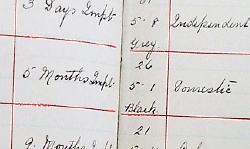 3 Days Impt
5 - 8 Independent
Grey
26
5 Months Impt
5 - 1 Domestic
Black
21